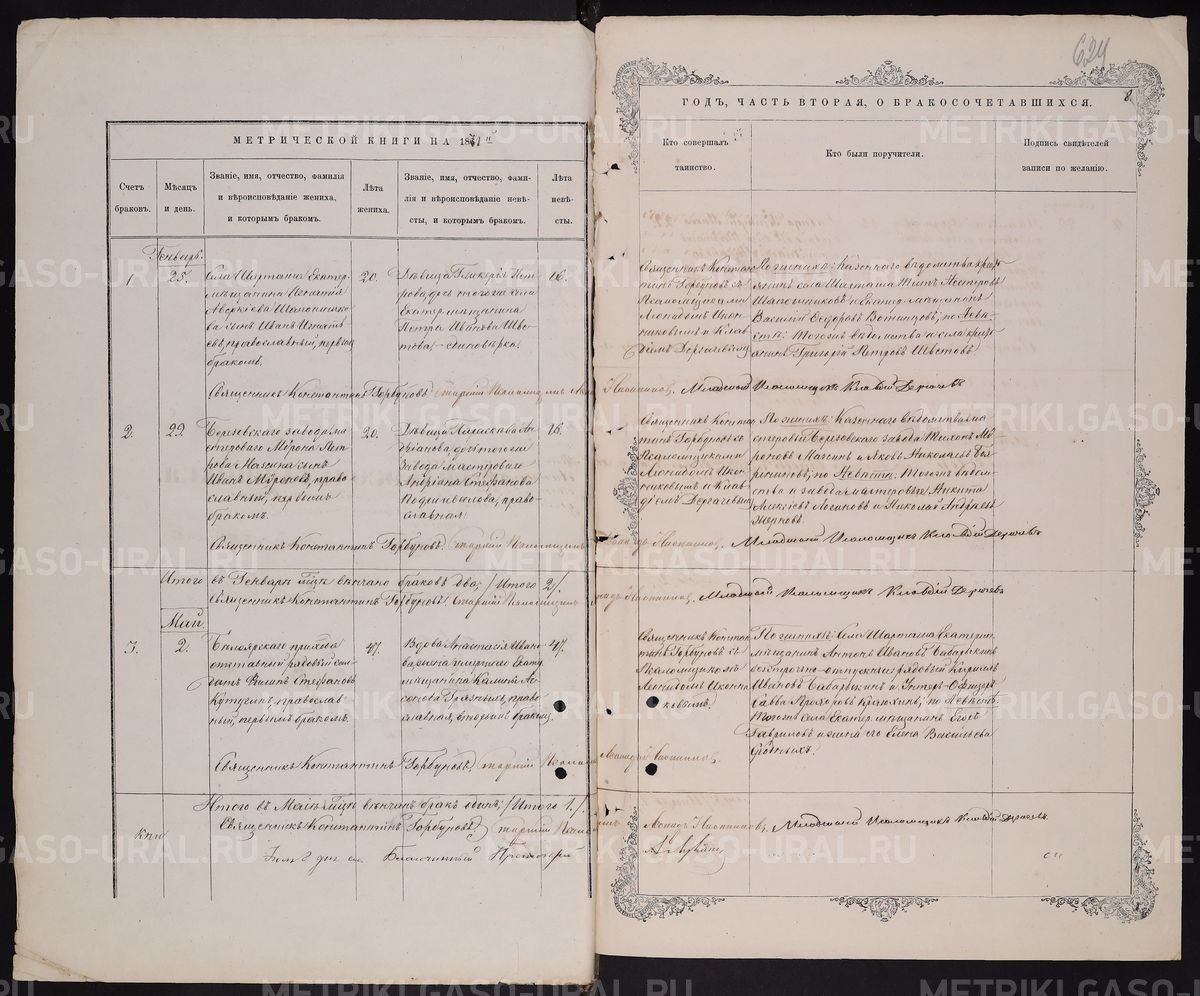 624
8.
МЕТРИЧЕСКОЙ КНИГИ НА 1871й
ГОДЪ, ЧАСТЬ ВТОРАЯ, О БРАКОСОЧЕТАВШИХСЯ.
Счетъ браковъ.
Мѣсяцъ и день.
Званіе, имя, отчество, фамилія
и вѣроисповѣданіе жениха,
и которымъ бракомъ.
Лѣта
жениха.
Званіе, имя, отчество, фами-
лія и вѣроисповѣданіе невѣ-
сты, и которымъ бракомъ.
Лѣта
невѣ-
сты.
Кто совершалъ
таинство.
Кто были поручители.
Подпись свидѣтелей
записи по желанію.
Генварь.
1
25.
Села Шарташа Екатер.
мѣщанина Игнатія
сынъ Иванъ Игнать
евъ, православный, первымъ
бракомъ.
20.
Дѣвица Гликерія Пет
рова, дчь того же села
Екатер. мѣщанина
Петра Иванова Цвѣ
това, единовѣрка.
16.
Священникъ Констан
тинъ Горбуновъ съ
Псаломщиками
Леонидомъ Икон
никовымъ и Клав
діемъ Дергачевымъ
По женихѣ: Казеннаго вѣдомства крест
янинъ села Шарташа Титъ Нестеровъ
Шапошниковъ и Екатер. мѣщанинъ
Василій Ѳедоровъ по Невѣ-
стѣ: Тогожъ вѣдомства и села крест
янинъ Григорій Петровъ Цвѣтовъ.
Священникъ Константинъ Горбуновъ. Старшій Псаломщикъ
Младшій Псаломщикъ Клавдій Дергачевъ
2.
29.
Березовскаго завода ма
стероваго Мирона Пет
рова сынъ
Иванъ Мироновъ, право
славный, первымъ
бракомъ.
20.
Дѣвица Пелагея Ан
дріанова, дчь тогожъ
завода мастероваго
Андріана Стефанова
право
славная
16.
Священникъ Констан
тинъ Горбуновъ съ
Псаломщиками
Леонидомъ Икон
никовымъ и Клав
діемъ Дергачевымъ
По женихѣ: Казеннаго вѣдомства ма
стеровой Березовскаго завода Тихонъ Ми
роновъ и Яковъ Николаевъ
по Невѣстѣ: Тогожъ вѣдом
ства и завода мастеровые Никита
Алексѣевъ Логиновъ и Николай Андреевъ
Священникъ Константинъ Горбуновъ. Старшій Псаломщикъ
Младшій Псаломщикъ Клавдій Дергачевъ
Итого въ Генварѣ мцѣ вѣнчано браковъ два, /Итого 2/.
Священникъ Константинъ Горбуновъ. Старшій Псаломщикъ
Младшій Псаломщикъ Клавдій Дергачевъ
Май.
3.
2.
Белоярскаго прихода
отставный рядовый сол
датъ Филипъ Стефановъ
православ
ный, первымъ бракомъ.
47.
Вдова Анастасія Ивано
ва, жена умершаго Екатер.
мѣщанина
право
славная, вторымъ бракомъ.
47.
Священникъ Констан
тинъ Горбуновъ съ
Псаломщикомъ
Леонидомъ Иконни
ковымъ.
По женихѣ: Села Шарташа Екатерин.
мѣщанинъ Антонъ Ивановъ Бабарыкинъ
безсрочно-отпускный рядовый Кирилъ
Ивановъ Бабарыкинъ и Унтеръ-Офицеръ
Савва Прохоровъ по Невѣстѣ:
Тогожъ села Екатер. мѣщанинъ Егоръ
Гавриловъ и жена его Елена Васильева
Священникъ Константинъ Горбуновъ. Старшій
Итого въ Маіѣ мцѣ вѣнчанъ бракъ единъ, /Итого 1./.
Священникъ Константинъ Горбуновъ. Старшій
Младшій Псаломщикъ Клавдій Дергачевъ.
Благочинный Протоіерей
METRIKI.GASO-URAL.RU